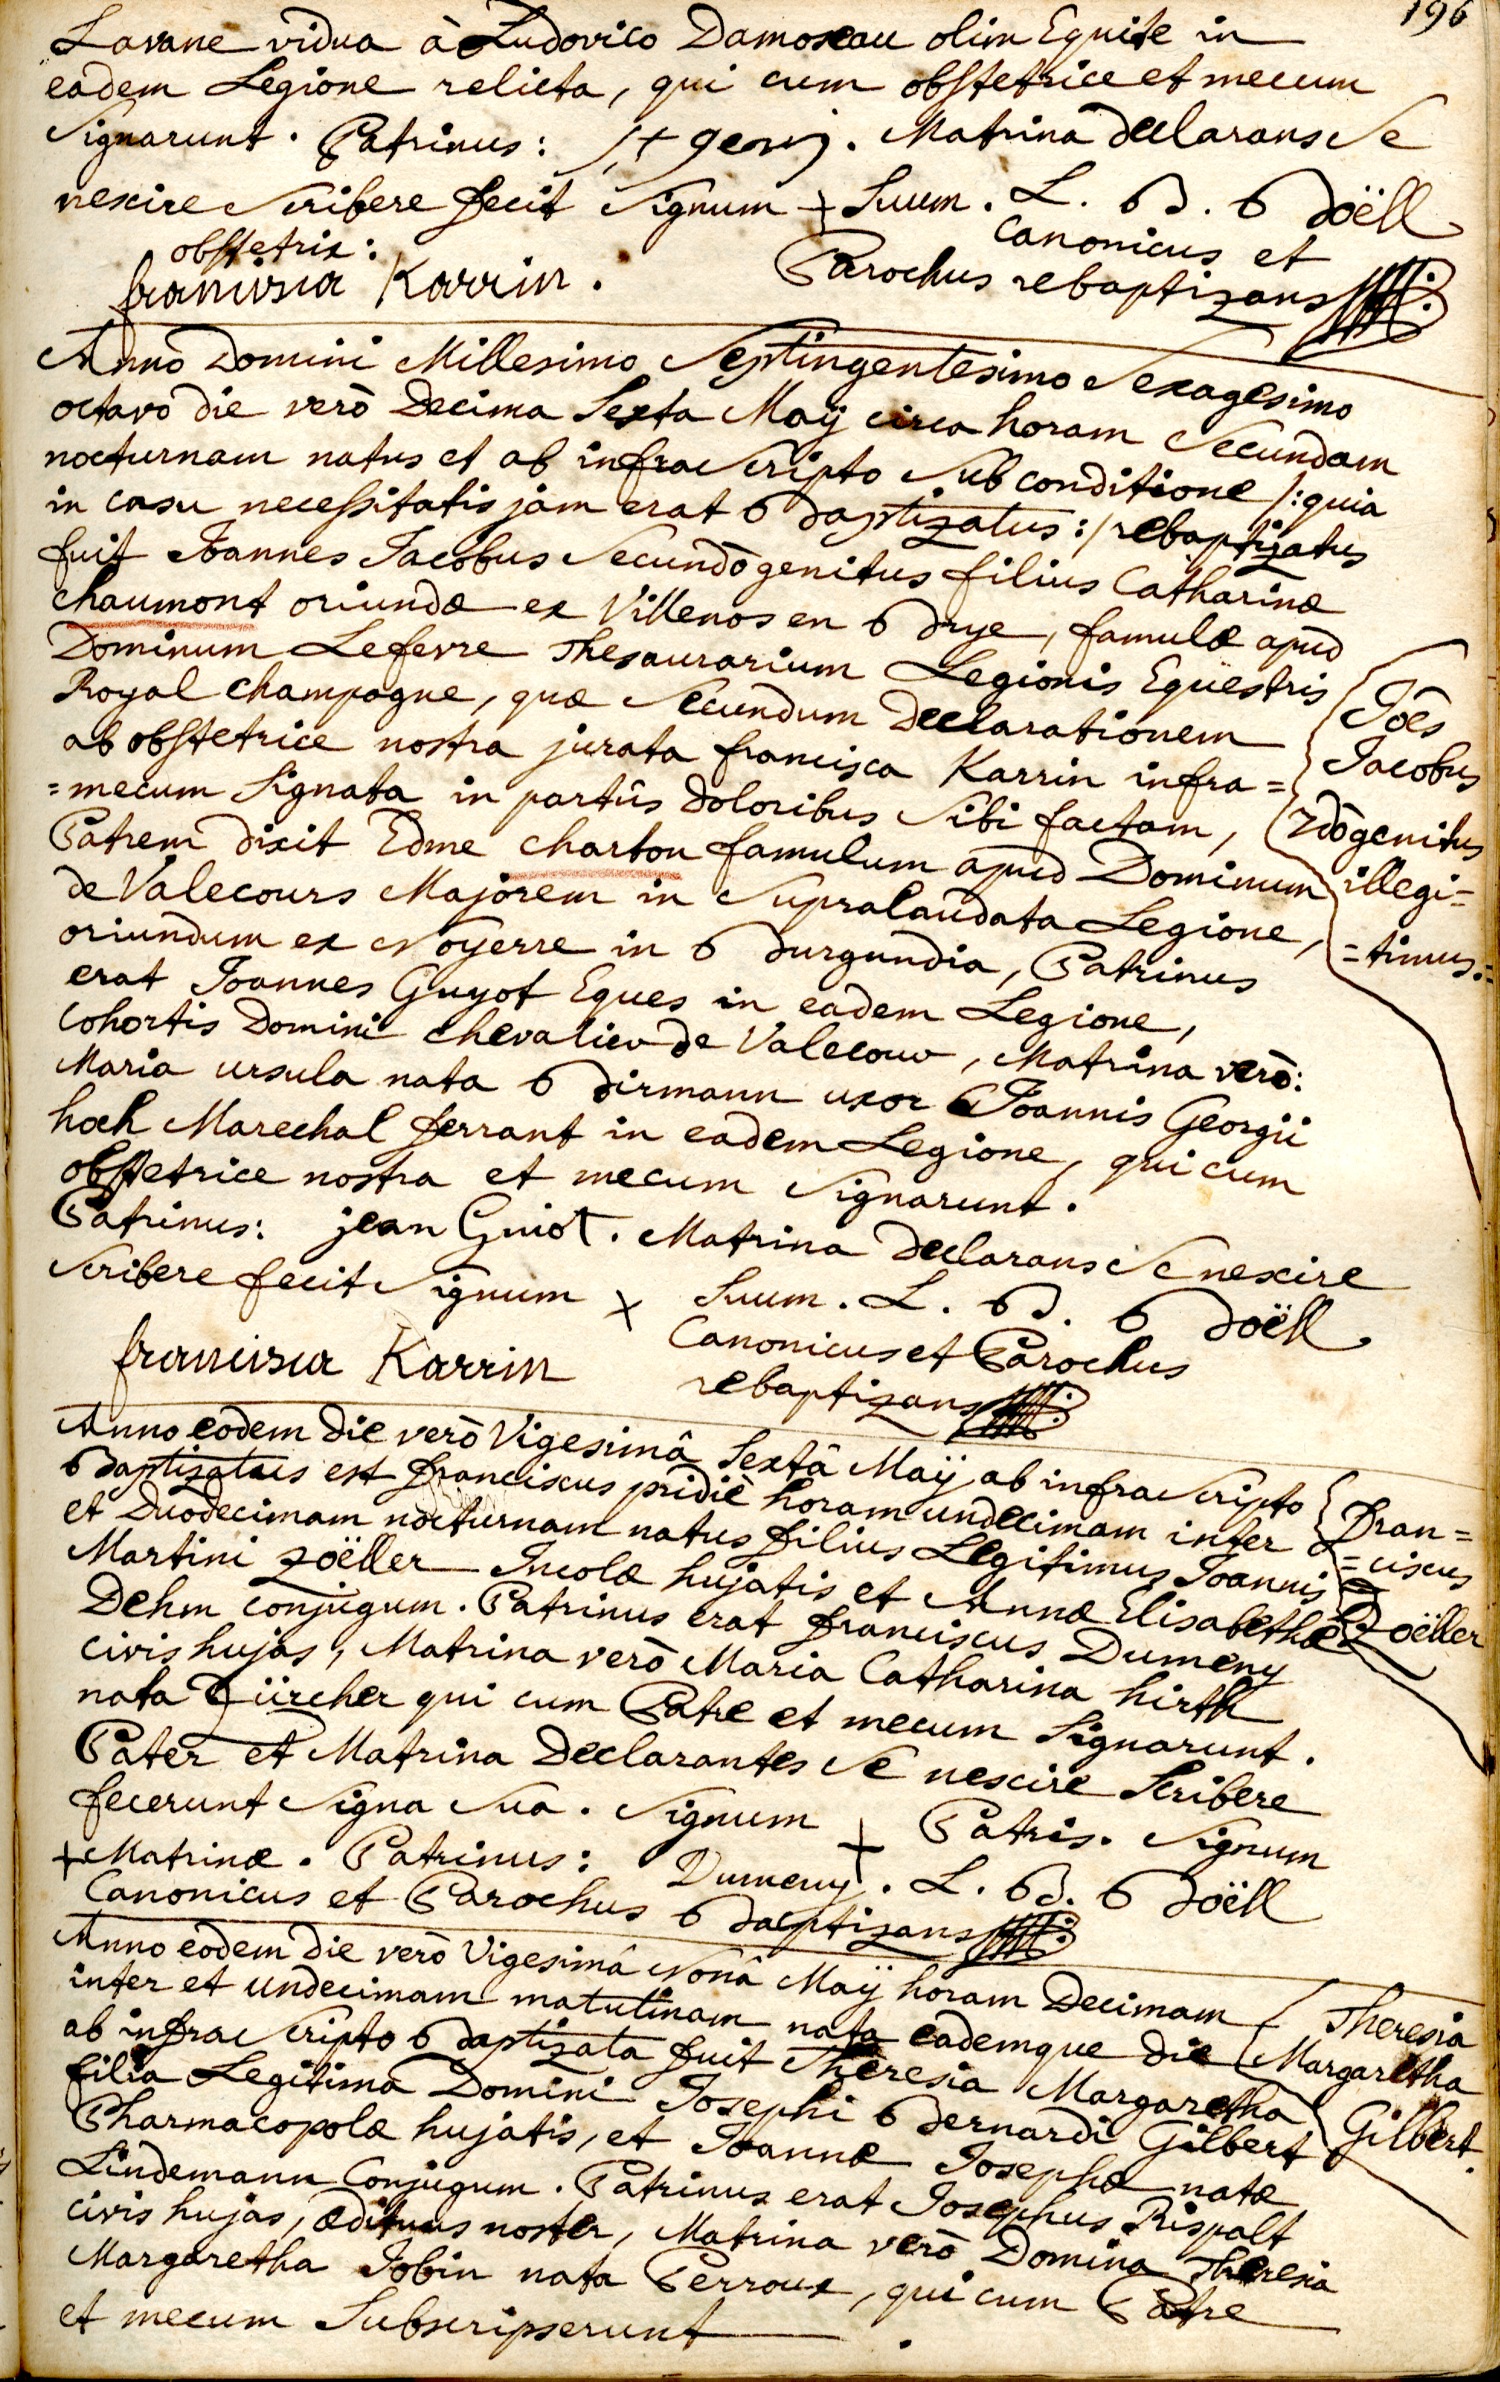 196
Lavane vidua à Ludovico Damoseau olim Equite in
eadem Legione relicta, qui cum obstetrice et mecum
signarunt. Patrinus: St georj. Matrina declarans se
nescire scribere fecit signum + suum. L. B. Böell
Canonicus et
obstetrix:
francisca Karrin.
Parochus rebaptizans
Anno Domini Millesimo Septingentesimo Sexagesimo
octavo die verò Decima Sexta Maÿ circa horam secundam
nocturnam natus et ab infra scripto sub conditione /:quia
in casu necessitatis jam erat baptizatus:/ rebaptizatus
fuit Joannes Jacobus secundògenitus filius Catharinæ
chaumont oriundæ ex Villenos en brye, famulæ apud
Dominum Lefevre Thesaurarium Legionis Equestris
Royal champagne, quæ secundum Declarationem
ab obstetrice nostra jurata francisca Karrin infra=
=mecum signata in partûs doloribus sibi factam,
Patrem dixit Edme charton famulum apud Dominum
de Valecours Majorem in supralaudata Legione,
oriundum ex Noyerre in burgundia, Patrinus
erat Joannes Guyot Eques in eadem Legione,
Cohortis Domini chevalier de Valecour, Matrina verò:
Maria ursula nata birmann uxor Joannis Georgii
hoch Marechal ferrant in eadem Legione, qui cum
obstetrice nostra et mecum signarunt.
Patrinus: jean Guiot. Matrina declarans se nescire
scribere fecit signum + suum. L. B. Böell
Canonicus et Parochus
francisca Karrin
rebaptizans
Jôes
Jacobus
2dògenitus
illegi=
=timus.=
Anno eodem die verò Vigesimâ Sextâ Maÿ ab infra scripto
baptizatus est franciscus pridiè horam undecimam inter
et Duodecimam nocturnam natus filius Legitimus Joannis
Martini zoëller Incolæ hujatis et Annæ Elisabethæ
Dehm conjugum. Patrinus erat franciscus Dumeny
civis hujas, Matrina verò Maria Catharina hirth
nata Zürcher qui cum Patre et mecum signarunt.
Pater et Matrina Declarantes se nescire scribere
fecerunt signa sua. signum + Patris. signum
+ Matrinæ. Patrinus: Dumeny. L. B. Böell
Canonicus et Parochus baptizans
Fran=
=ciscus
Zoëller
Anno eodem die verò Vigesimâ Nonâ Maÿ horam Decimam
inter et undecimam matutinam nata eademque die
ab infra scripto baptizata fuit Theresia Margaretha
filia Legitima Domini Josephi bernardi Gilbert
Pharmacopolæ hujatis, et Joannæ Josephæ natæ
Lindemann Conjugum. Patrinus erat Josephus Rispalt
civis hujas, ædituus noster, Matrina verò Domina Theresia
Margaretha Jobin nata Perroux, qui cum Patre
et mecum subscripserunt.
Theresia
Margaretha
Gilbert.